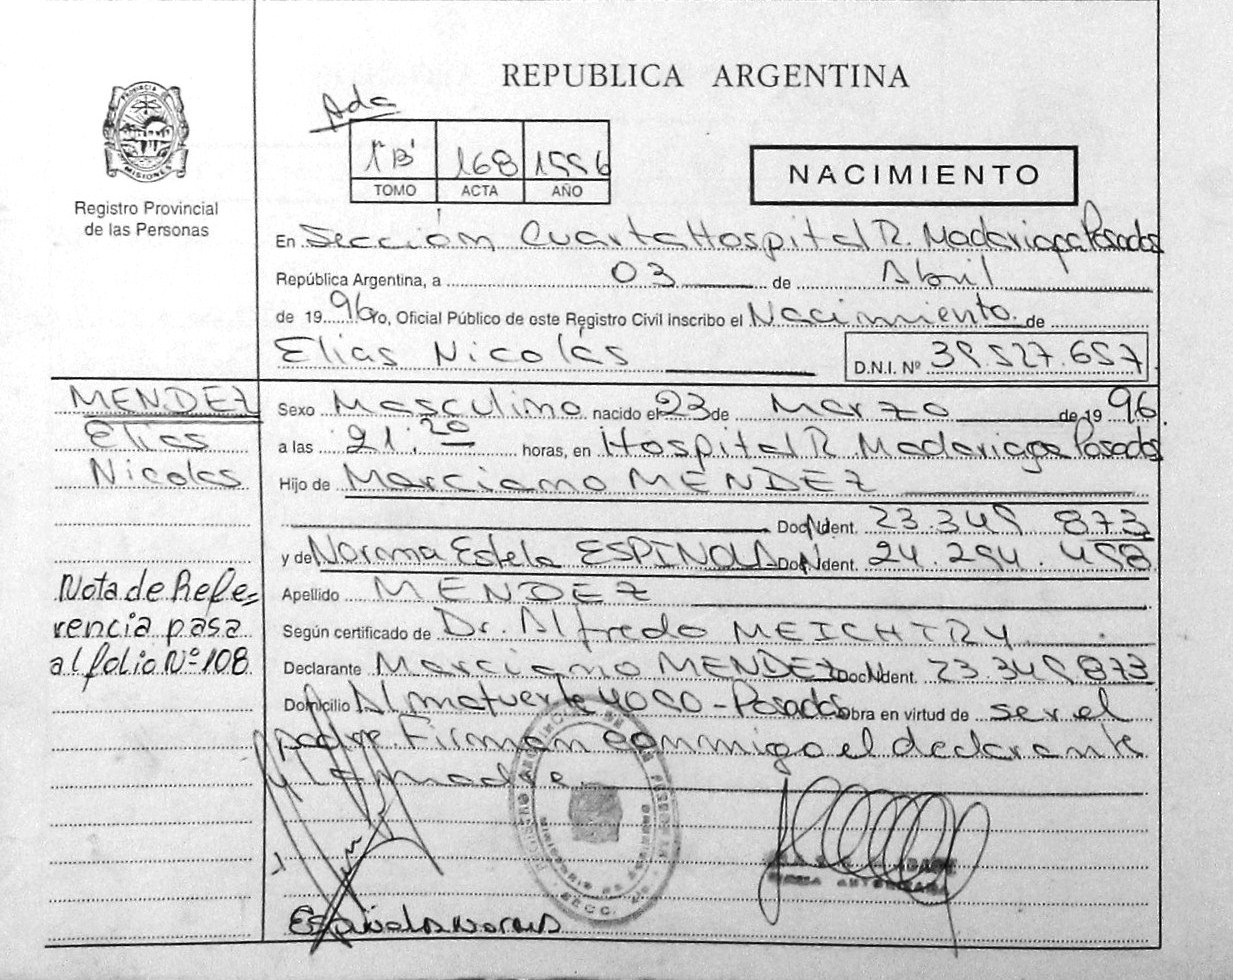 REPUBLICA ARGENTINA
Ada
PROVINCIA DE MISIONES
1"B" 168 1996
TOMO ACTA AÑO
NACIMIENTO
Registro Provincial
de las Personas
En Sección Cuarta Hospital R. Madariaga Posadas
República Argentina, a 03 de Abril
de 19 96 Yo, Oficial Público de este Registro Civil inscribo el Nacimiento de
Elias Nicolás
D.N.I. Nº 39.527.657
MENDEZ
Elias
Nicolas
Sexo Masculino nacido el 23 de Marzo de 19 96
a las 21:20 horas, en Hospital R. Madariaga Posadas
Hijo de Marciano MENDEZ
Doc Ident. 23.349.873
y de Norma Estela ESPINOLA Doc Ident. 24.294.458
Apellido MENDEZ
Según certificado de Dr. Alfredo MEICHTRY
Declarante Marciano MENDEZ Doc Ident. 23.349.873
Domicilio Almafuerte 4090 - Posadas obra en virtud de ser el
padre. Firman conmigo el declarante
y madre.
Nota de Refe=
rencia pasa
al folio Nº 108